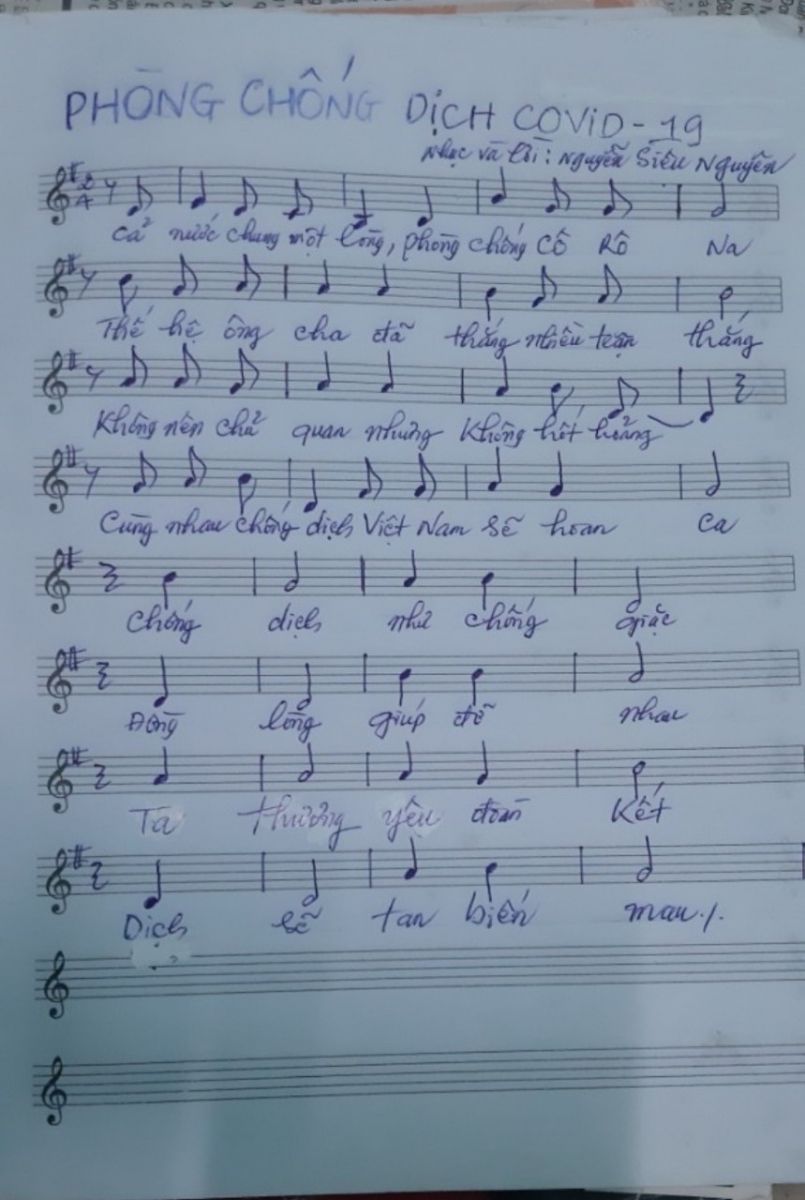 PHÒNG CHỐNG DỊCH COVID-19
Nhạc và lời: Nguyễn Siêu Nguyễn
2
4
Cả nước chung một lòng, phòng chống Cô Rô Na
Thế hệ ông cha đã thắng nhiều trận thắng
Không nên chủ quan nhưng Không hốt hoảng
Cùng nhau chống dịch Việt Nam sẽ hoan ca
Chống dịch như chống giặc
Đồng lòng giúp đỡ nhau
Ta thương yêu đoàn Kết
Dịch sẽ tan biến mau./.